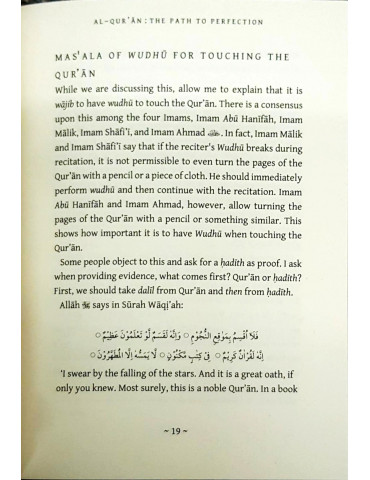 AL-QUR'ĀN : THE PATH TO PERFECTION
MAS'ALA OF WUDHŪ FOR TOUCHING THE
QUR'ĀN
While we are discussing this, allow me to explain that it is
wājib to have wudhū to touch the Qur'ān. There is a consensus
upon this among the four Imams, Imam Abū Hanīfāh, Imam
Mālik, Imam Shāfi'ī, and Imam Ahmad. In fact, Imam Mālik
and Imam Shāfi'ī say that if the reciter's Wudhū breaks during
recitation, it is not permissible to even turn the pages of the
Qur'ān with a pencil or a piece of cloth. He should immediately
perform wudhū and then continue with the recitation. Imam
Abū Hanīfāh and Imam Ahmad, however, allow turning the
pages of the Qur'ān with a pencil or something similar. This
shows how important it is to have Wudhū when touching the
Qur'ān.
Some people object to this and ask for a ḥadīth as proof. I ask
when providing evidence, what comes first? Qur'ān or ḥadīth?
First, we should take dalīl from Qur'ān and then from ḥadīth.
Allāh ﷻ says in Sūrah Wāqi'ah:
فَلَآ اُقْسِمُ بِمَوٰقِعِ النُّجُوْمِ ○ وَاِنَّهٗ لَقَسَمٌ لَّوْ تَعْلَمُوْنَ عَظِيْمٌ ○
اِنَّهٗ لَقُرْاٰنٌ كَرِيْمٌ ○ فِىْ كِتٰبٍ مَّكْنُوْنٍ ○ لَّا يَمَسُّهٗٓ اِلَّا الْمُطَهَّرُوْنَ ○
'I swear by the falling of the stars. And it is a great oath, if
only you knew. Most surely, this is a noble Qur'ān. In a book
~ 19 ~